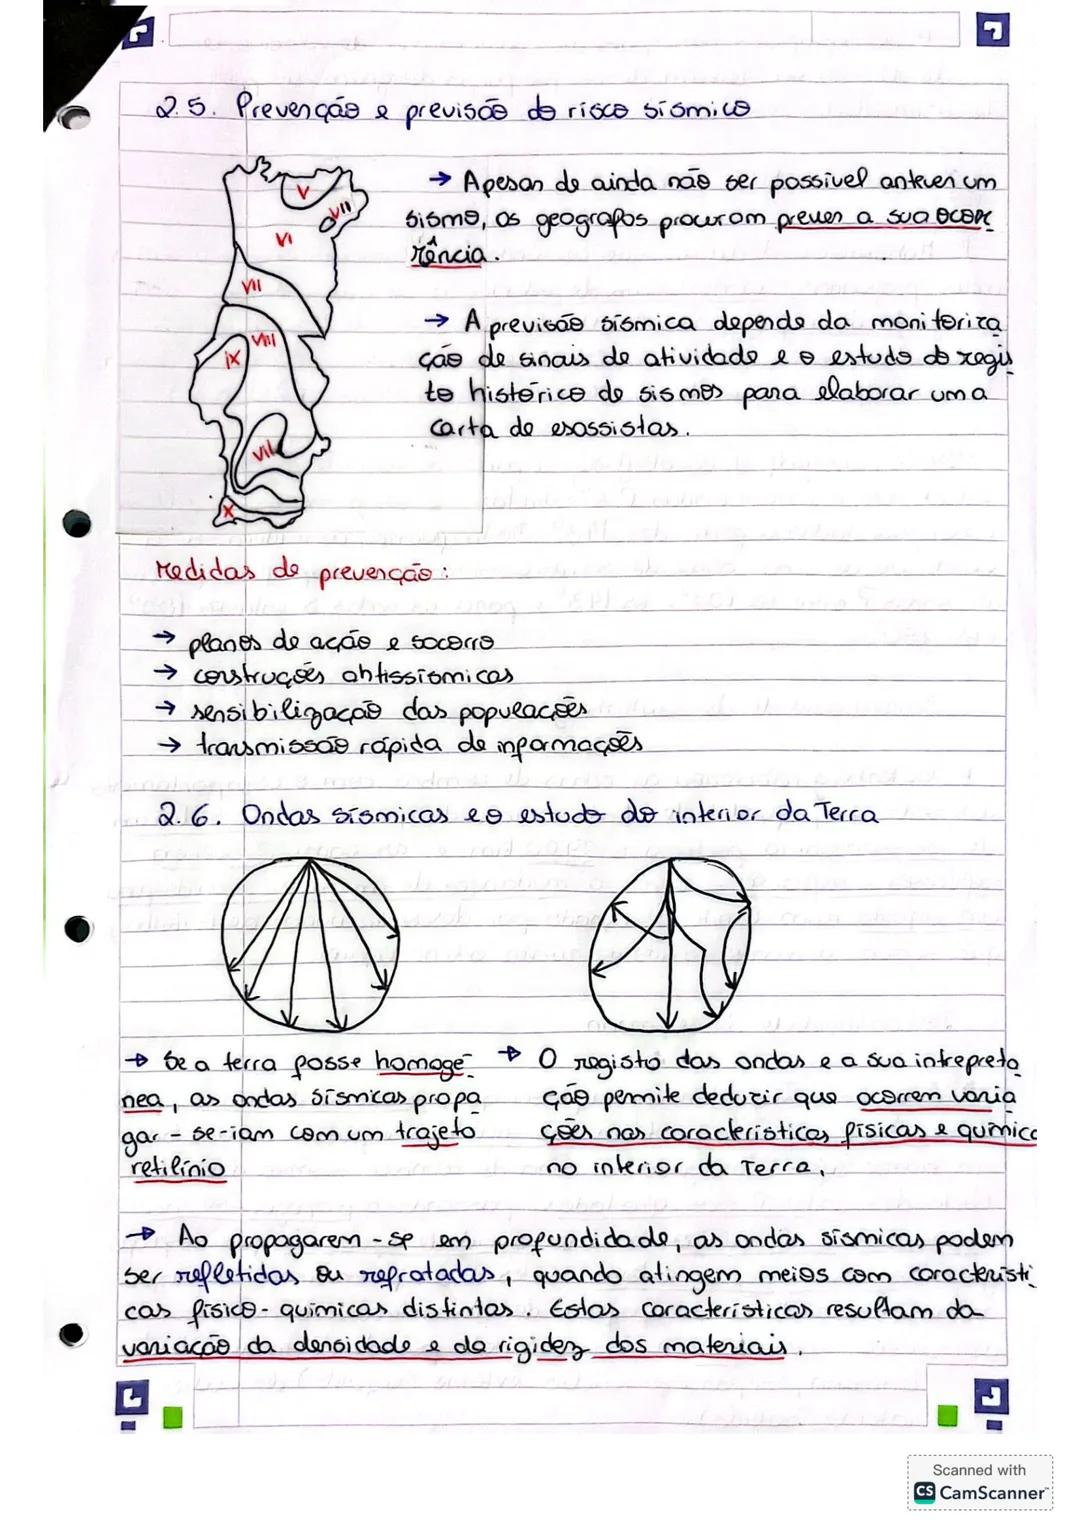 2.5. Prevenção e previsão do risco sísmico
V
VII
VI
VII
VIII
IX
VII
X
→ Apesar de ainda não ser possível antever um
sismo, os geografos procuram prever a sua ocor
rência.
→ A previsão sísmica depende da monitoriza
ção de sinais de atividade e o estudo do regis
to histórico de sismos para elaborar uma
carta de esossistas.
Medidas de prevenção:
→ planos de ação e socorro
→ construções antissísmicas
→ sensibilização das populações
→ transmissão rápida de informações
2.6. Ondas sísmicas e o estudo do interior da Terra
→ Se a terra fosse homogé
nea, as ondas sísmicas propa
gar-se-iam com um trajeto
retilínio
→ O registo das ondas e a sua intrepreta
ção permite deduzir que ocorrem varia
ções nas características físicas e química
no interior da Terra.
→ Ao propagarem-se em profundidade, as ondas sísmicas podem
ser refletidas ou refratadas, quando atingem meios com caracteristi
cas físico-químicas distintas. Estas características resultam da
variação da densidade e da rigidez dos materiais.
Scanned with
CS CamScanner